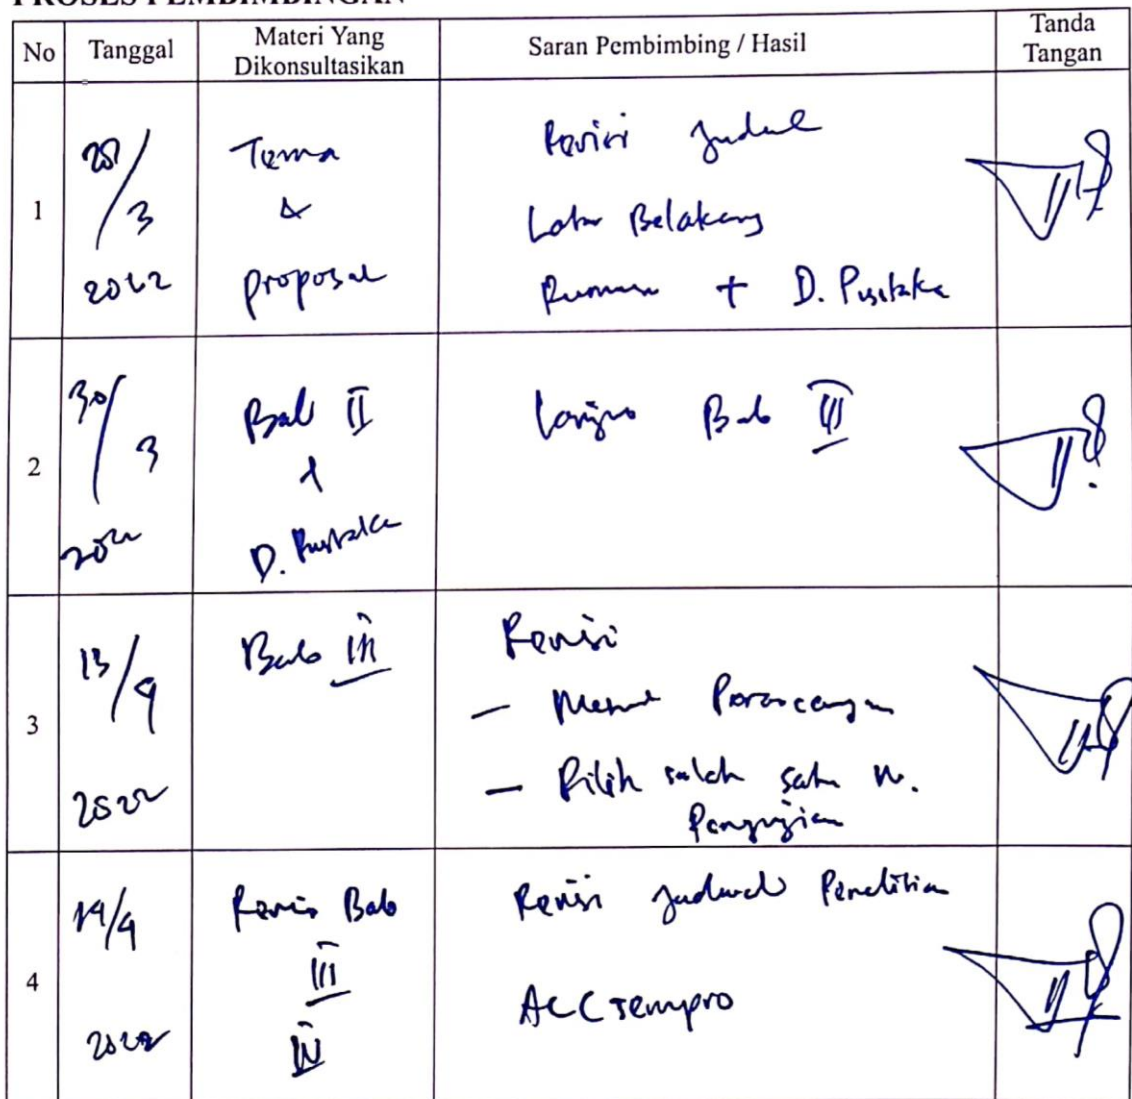 PROSES PEMBIMBINGAN
No Tanggal Materi Yang Dikonsultasikan Saran Pembimbing / Hasil Tanda Tangan
1
3
2022
Tema
&
proposal
Revisi Judul
Latar Belakang
Rumusan + D. Pustaka
2
30/3
2022
Bab II
+
D. Pustaka
Lanjut Bab III
3
13/4
2022
Bab III
Revisi
— Perancangan
— Pilih salah satu m.
Pengujian
4
14/4
2022
Revisi Bab
III
IV
Revisi Jadwal Penelitian
ACC sempro